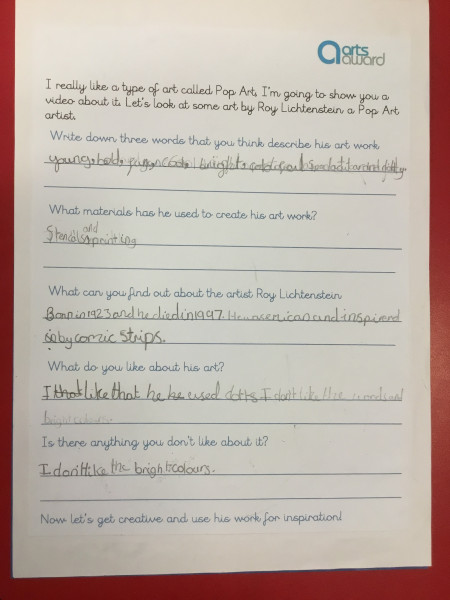 arts
award
I really like a type of art called Pop Art. I'm going to show you a
video about it. Let's look at some art by Roy Lichtenstein a Pop Art
artist.
Write down three words that you think describe his art work
young bold bright and dotty
What materials has he used to create his art work?
and
Stencils printing
What can you find out about the artist Roy Lichtenstein
Born in 1923 and he died in 1997. and inspired
by comic strips.
What do you like about his art?
I that like that he he used dots I don't like the words and
bright colours.
Is there anything you don't like about it?
I don't like the bright colours.
Now let's get creative and use his work for inspiration!